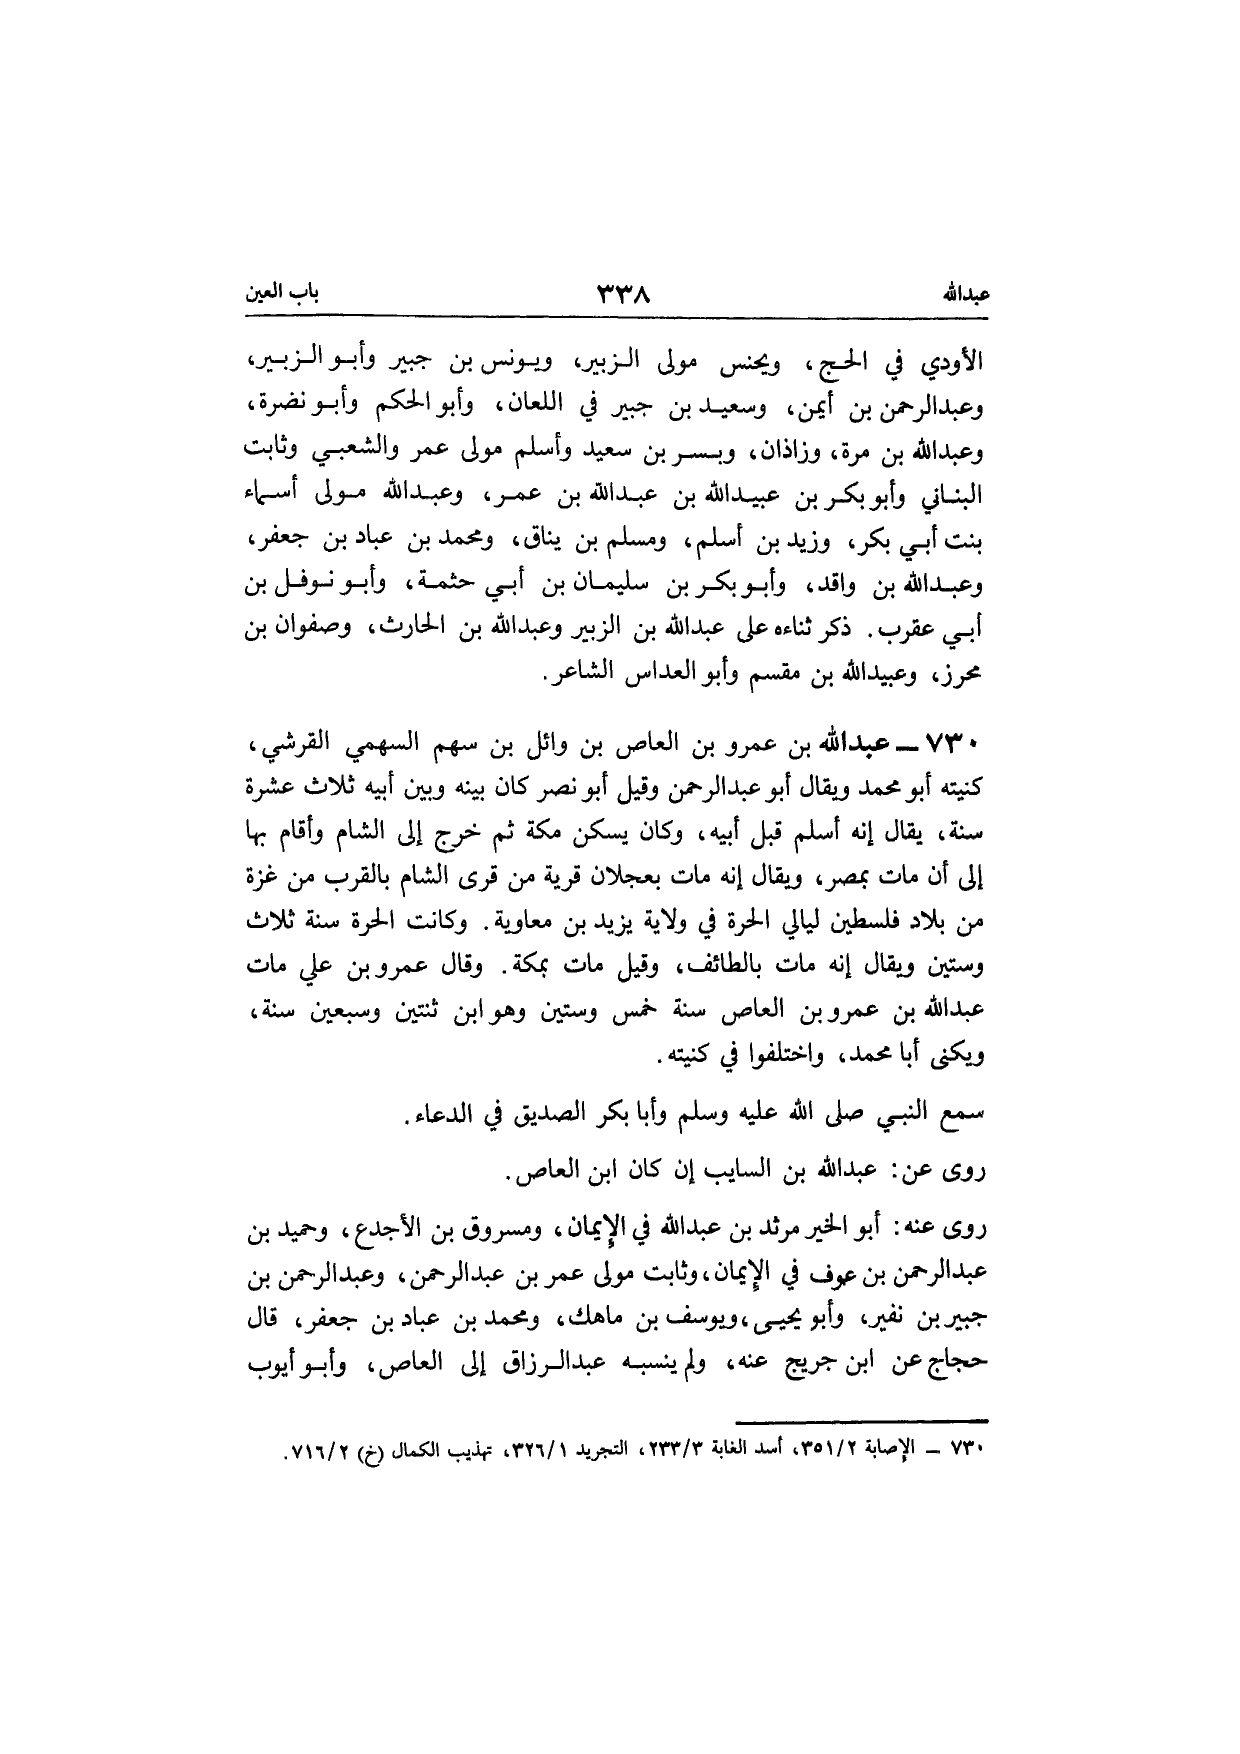 عبدالله ٣٣٨ باب العين
الأودي في الحج، ويحنس مولى الزبير، ويونس بن جبير وأبو الزبير،
وعبدالرحمن بن أيمن، وسعيد بن جبير في اللعان، وأبو الحكم وأبو نضرة،
وعبدالله بن مرة، وزاذان، وبسر بن سعيد وأسلم مولى عمر والشعبي وثابت
البناني وأبو بكر بن عبيدالله بن عبدالله بن عمر، وعبدالله مولى أسماء
بنت أبي بكر، وزيد بن أسلم، ومسلم بن يناق، ومحمد بن عباد بن جعفر،
وعبدالله بن واقد، وأبو بكر بن سليمان بن أبي حثمة، وأبو نوفل بن
أبي عقرب. ذكر ثناءه على عبدالله بن الزبير وعبدالله بن الحارث، وصفوان بن
محرز، وعبيدالله بن مقسم وأبو العداس الشاعر.
٧٣٠ ــ عبدالله بن عمرو بن العاص بن وائل بن سهم السهمي القرشي،
كنيته أبو محمد ويقال أبو عبدالرحمن وقيل أبو نصر كان بينه وبين أبيه ثلاث عشرة
سنة، يقال إنه أسلم قبل أبيه، وكان يسكن مكة ثم خرج إلى الشام وأقام بها
إلى أن مات بمصر، ويقال إنه مات بعجلان قرية من قرى الشام بالقرب من غزة
من بلاد فلسطين ليالي الحرة في ولاية يزيد بن معاوية. وكانت الحرة سنة ثلاث
وستين ويقال إنه مات بالطائف، وقيل مات بمكة. وقال عمرو بن علي مات
عبدالله بن عمرو بن العاص سنة خمس وستين وهو ابن ثنتين وسبعين سنة،
ويكنى أبا محمد، واختلفوا في كنيته.
سمع النبي صلى الله عليه وسلم وأبا بكر الصديق في الدعاء.
روى عن: عبدالله بن السايب إن كان ابن العاص.
روى عنه: أبو الخير مرثد بن عبدالله في الإيمان، ومسروق بن الأجدع، وحميد بن
عبدالرحمن بن عوف في الإيمان، وثابت مولى عمر بن عبدالرحمن، وعبدالرحمن بن
جبير بن نفير، وأبو يحيى، ويوسف بن ماهك، ومحمد بن عباد بن جعفر، قال
حجاج عن ابن جريج عنه، ولم ينسبه عبدالرزاق إلى العاص، وأبو أيوب
٧٣٠ ــ الإصابة ٣٥١/٢، أسد الغابة ٢٣٣/٣، التجريد ٣٢٦/١، تهذيب الكمال (خ) ٧١٦/٢.